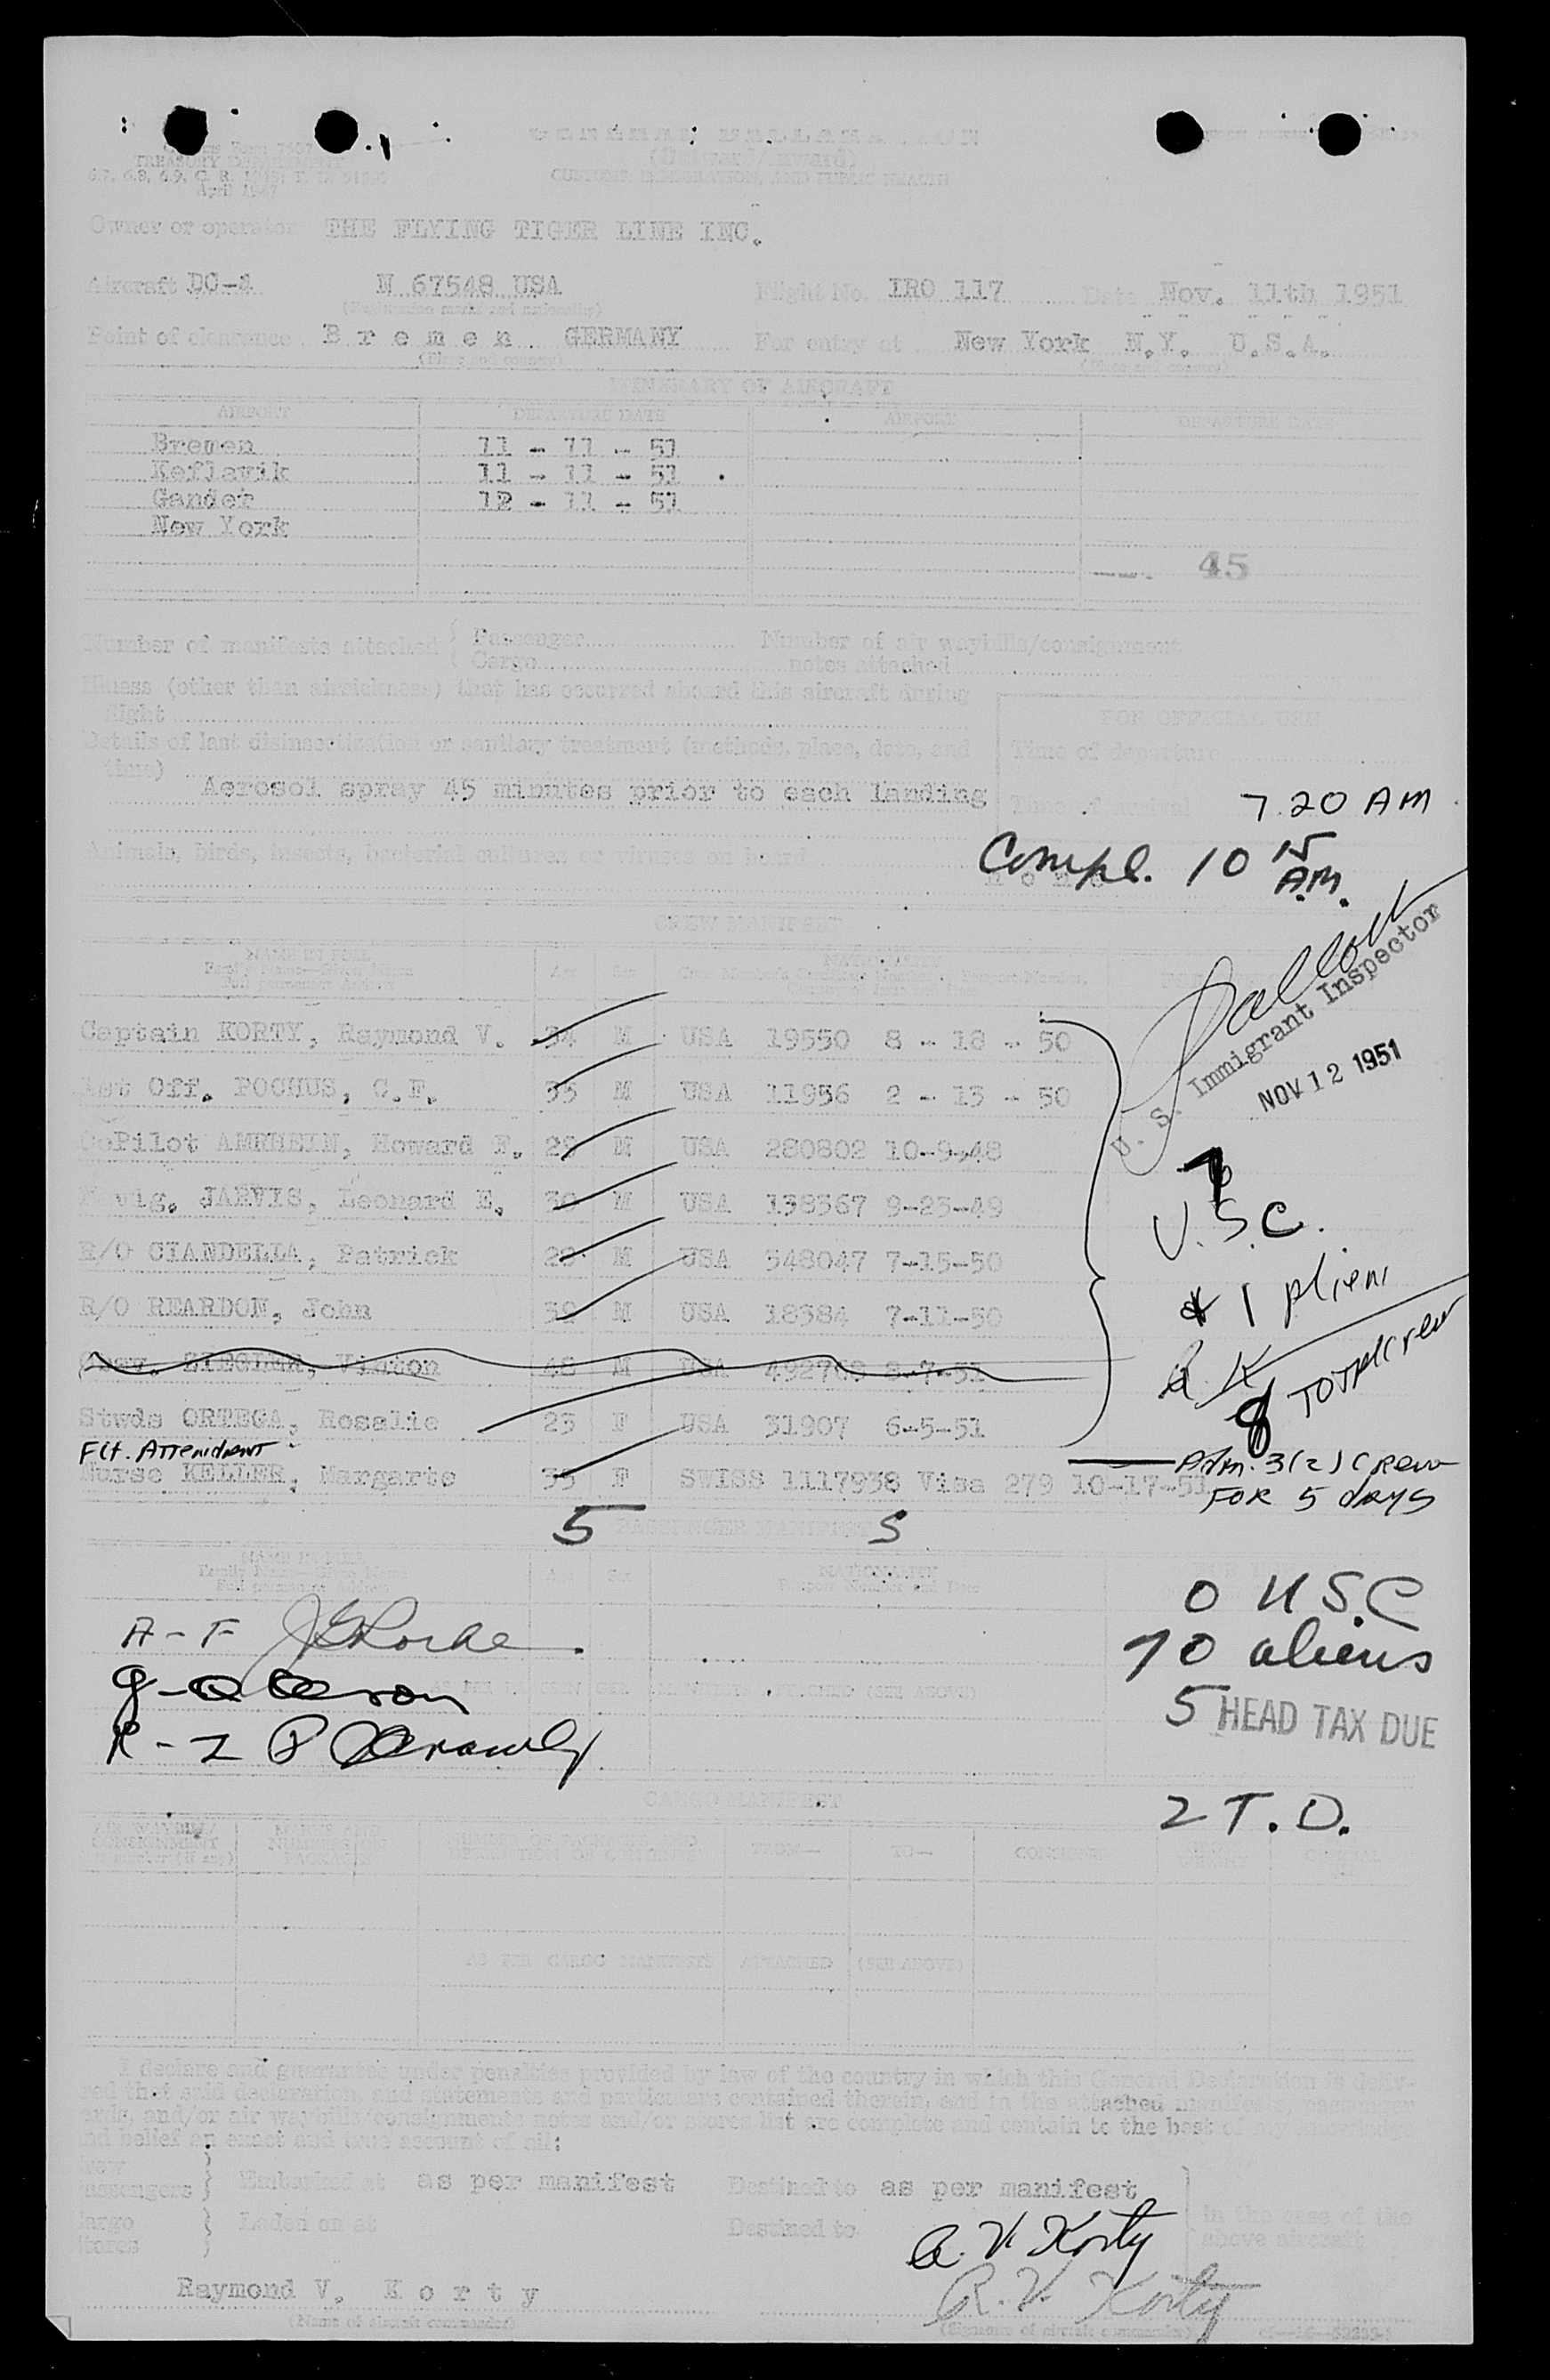 TREASURY DEPARTMENT
April 1947
(Outward/Inward)
CUSTOMS, IMMIGRATION, AND PUBLIC HEALTH
Owner or operator THE FLYING TIGER LINE INC.
Aircraft DC-4 N 67548 USA Flight No. IRO 117 Date Nov. 11th 1951
(Registration marks and nationality)
Point of clearance B r e m e n GERMANY For entry at New York N.Y. U.S.A.
(Place and country) (Place and country)
ITINERARY OF AIRCRAFT
AIRPORT DEPARTURE DATE AIRPORT DEPARTURE DATE
Bremen 11 - 11 - 51
Keflavik 11 - 11 - 51
Gander 12 - 11 - 51
New York
45
Number of manifests attached { Passenger Number of air waybills/consignment
Cargo notes attached
Illness (other than airsickness) that has occurred aboard this aircraft during
flight
FOR OFFICIAL USE
Details of last disinsectization or sanitary treatment (methods, place, date, and
time)
Time of departure
Aerosol spray 45 minutes prior to each landing
Time of arrival 7.20 AM
Animals, birds, insects, bacterial cultures or viruses on board
Compl. 10 15 A.M.
CREW MANIFEST
NAME IN FULL Age Sex NATIONALITY
Family Name—Given Name
U. S. Immigrant Inspector
NOV 12 1951
Captain KORTY, Raymond V. 34 M USA 19550 8 - 18 - 50
1st Off. POCHUS, C.F. 33 M USA 11956 2 - 13 - 50
CoPilot AMRHEIN, Howard F. 28 M USA 280802 10-9-48
Navig. JARVIS, Leonard E. 30 M USA 138367 9-23-49
R/O CIANDELLA, Patrick 28 M USA 348047 7-15-50
R/O REARDON, John 39 M USA 18384 7-11-50
Vinton 48 M USA
Stwds ORTEGA, Rosalie 23 F USA 31907 6-5-51
Flt. Attendant
Nurse KELLER, Margarte 33 F SWISS 1117938 Visa 279 10-17-51
7
U.S.C.
1 Alien
R K
8 TOTAL Crew
Adm. 3(2) Crew
FOR 5 dAYS
5 PASSENGER MANIFEST 5
NAME IN FULL Age Sex NATIONALITY
Family Name—Given Name Passport Number and Date
0 U.S.C
70 aliens
5 HEAD TAX DUE
2 T.D.
A - F
G - Q
R - Z
(SEE ABOVE)
CARGO MANIFEST
FROM— TO—
AS PER CARGO MANIFESTS ATTACHED (SEE ABOVE)
I declare and guarantee under penalties provided by law of the country in which this General Declaration is deliv-
ered that said declaration, and statements and particulars contained therein, and in the attached manifests, passenger
cards, and/or air waybills/consignments notes and/or stores list are complete and contain to the best of my knowledge
and belief an exact and true account of all:
Crew
Passengers } Embarked at as per manifest Destined to as per manifest
Cargo
Stores } Laden on at Destined to
In the case of the
above aircraft
R. V. Korty
Raymond V. K o r t y R. V. Korty
(Name of aircraft commander) (Signature of aircraft commander)